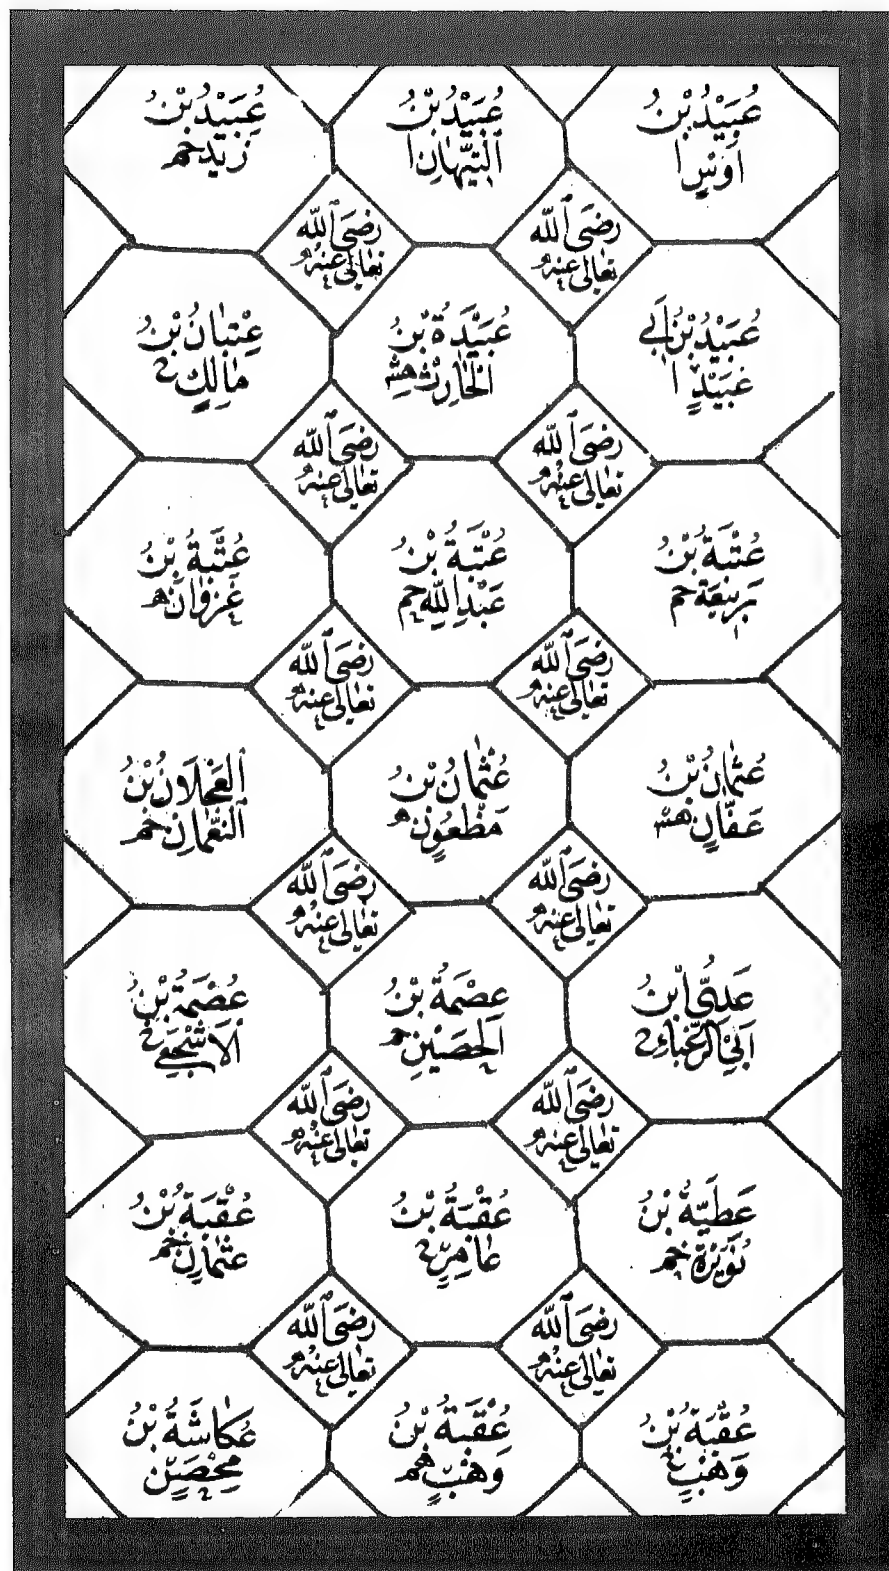 عُبَيْدُ بْنُ
اَوْسٍ ا
عُبَيْدُ بْنُ
ٱلتَّيِّهَانِ ا
عُبَيْدُ بْنُ
زَيْدٍ خم
رَضِىَ ٱللّٰه
تَعَالٰى عَنْهُ
رَضِىَ ٱللّٰه
تَعَالٰى عَنْهُ
عُبَيْدُ بْنُ اَبِي
عُبَيْدٍ ا
عُبَيْدَةُ بْنُ
الْحَارِثِ
عِتْبَانُ بْنُ
مَالِكٍ
رَضِىَ ٱللّٰه
تَعَالٰى عَنْهُ
رَضِىَ ٱللّٰه
تَعَالٰى عَنْهُ
عُتْبَةُ بْنُ
رَبِيْعَةَ
عُتْبَةُ بْنُ
عَبْدِاللّٰهِ
عُتْبَةُ بْنُ
غَزْوَانَ
رَضِىَ ٱللّٰه
تَعَالٰى عَنْهُ
رَضِىَ ٱللّٰه
تَعَالٰى عَنْهُ
عُثْمَانُ بْنُ
عَفَّانٍ
عُثْمَانُ بْنُ
مَظْعُوْنٍ
ٱلْعَجْلَانُ بْنُ
ٱلنُّعْمَانِ خم
رَضِىَ ٱللّٰه
تَعَالٰى عَنْهُ
رَضِىَ ٱللّٰه
تَعَالٰى عَنْهُ
عَدِيُّ ابْنُ
اَبِي الزَّغْبَاءِ
عِصْمَةُ بْنُ
الْحُصَيْنِ
عُصْمَةُ بْنُ
ٱلْاَشْجَعِي
رَضِىَ ٱللّٰه
تَعَالٰى عَنْهُ
رَضِىَ ٱللّٰه
تَعَالٰى عَنْهُ
عَطِيَّةُ بْنُ
نُوَيْرَةَ خم
عُقْبَةُ بْنُ
عَامِرٍ
عُقْبَةُ بْنُ
عُثْمَانَ خم
رَضِىَ ٱللّٰه
تَعَالٰى عَنْهُ
رَضِىَ ٱللّٰه
تَعَالٰى عَنْهُ
عُقْبَةُ بْنُ
وَهْبٍ
عُقْبَةُ بْنُ
وَهْبٍ
عُكَاشَةُ بْنُ
مِحْصَيْنٍ